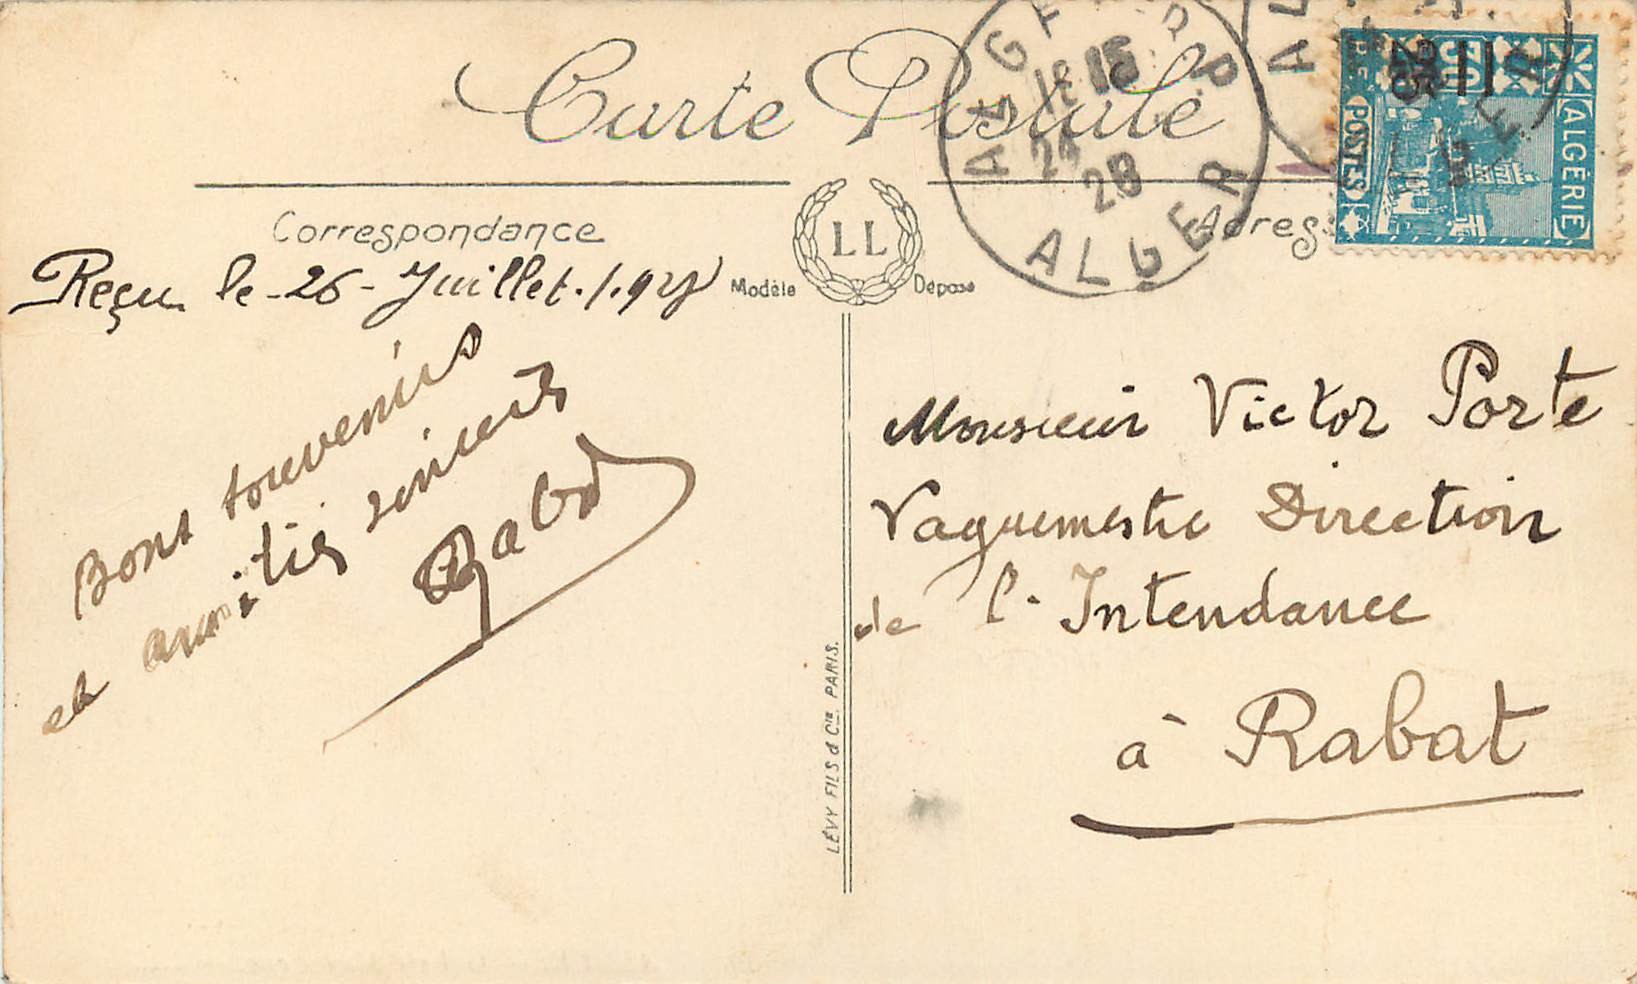 Carte Postale
Correspondance
Adres
LL
Modèle Déposé
ALGER R.P
ALGER
28
ALGÉRIE
POSTES
25
Reçu le - 26 - Juillet. 1.928
Bons souvenirs
et amitiés sincères
Rabo
Monsieur Victor Porte
Vaguemestre Direction
de l'Intendance
à Rabat
LÉVY FILS & Cie. PARIS.